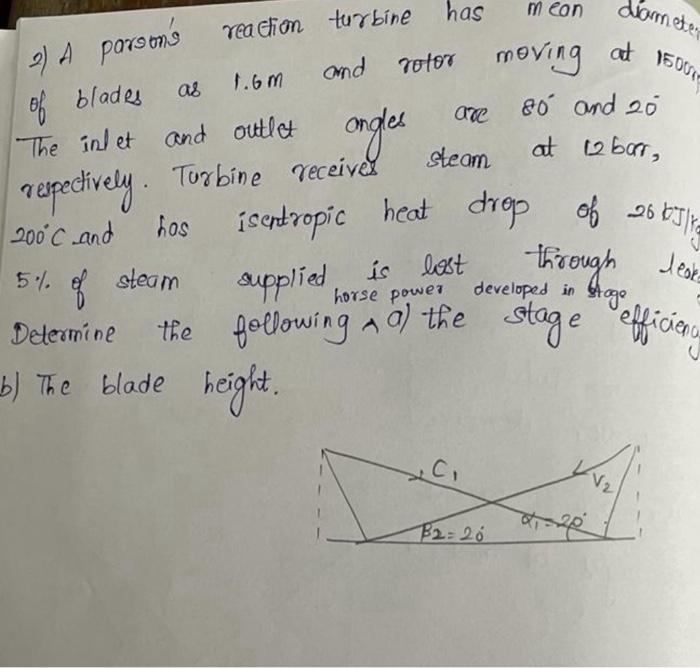 2) A parson's reaction turbine has mean diameter
of blades as 1.6m and rotor moving at 1500
The inlet and outlet angles are 80° and 20°
respectively. Turbine receives steam at 12 bar,
200°C and has isentropic heat drop of 26 kJ/kg
5% of steam supplied is lost through leak
horse power developed in stage
Determine the following ^ a) the stage efficiency
b) The blade height.
C1
V2
β2=20°
α1=20°